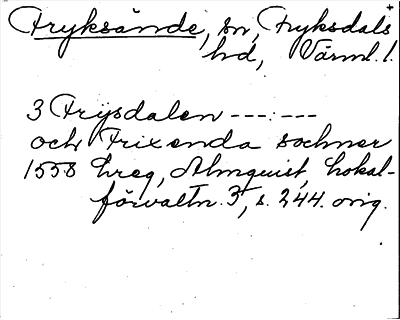 Fryksände, sn, Fryksdals
hd, Värml. l.
3 Frijsdalen ---:---
och Frixenda sochner
1558 hreg, Almquist, Lokal-
förvaltn. 3, s. 244. orig.